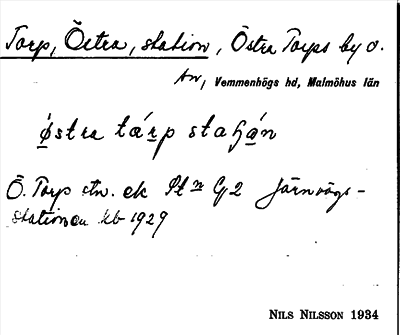 Torp, Östra, station, Östra Torps by o.
sn, Vemmenhögs hd, Malmöhus län
østra tárp staɧán
Ö. Torp stn. ek Bl n G2 Järnvägs-
stationen kb 1929
NILS NILSSON 1934